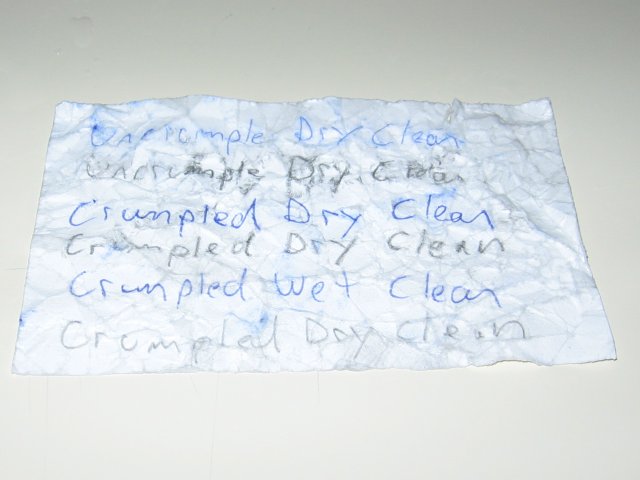 Uncrumple Dry Clean
Uncrumple Dry Clean
Crumpled Dry Clean
Crumpled Dry Clean
Crumpled Wet Clean
Crumpled Dry Clean